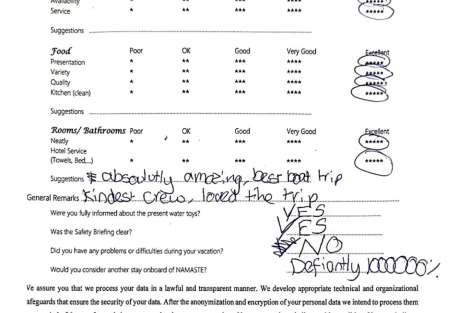 Availability
Service * ** *** **** *****
Suggestions
Food Poor OK Good Very Good Excellent
Presentation * ** *** **** *****
Variety * ** *** **** *****
Quality * ** *** **** *****
Kitchen (clean) * ** *** **** *****
Suggestions
Rooms/Bathrooms Poor OK Good Very Good Excellent
Neatly * ** *** **** *****
Hotel Service
(Towels, Bed,...) * ** *** **** *****
Suggestions * absolutly amazing, best boat trip
General Remarks Kindest crew, loved the trip
Were you fully informed about the present water toys? YES
Was the Safety Briefing clear? YES
Did you have any problems or difficulties during your vacation? NO
Would you consider another stay onboard of NAMASTE? Defiantly 1000000%
We assure you that we process your data in a lawful and transparent manner. We develop appropriate technical and organizational
safeguards that ensure the security of your data. After the anonymization and encryption of your personal data we intend to process them